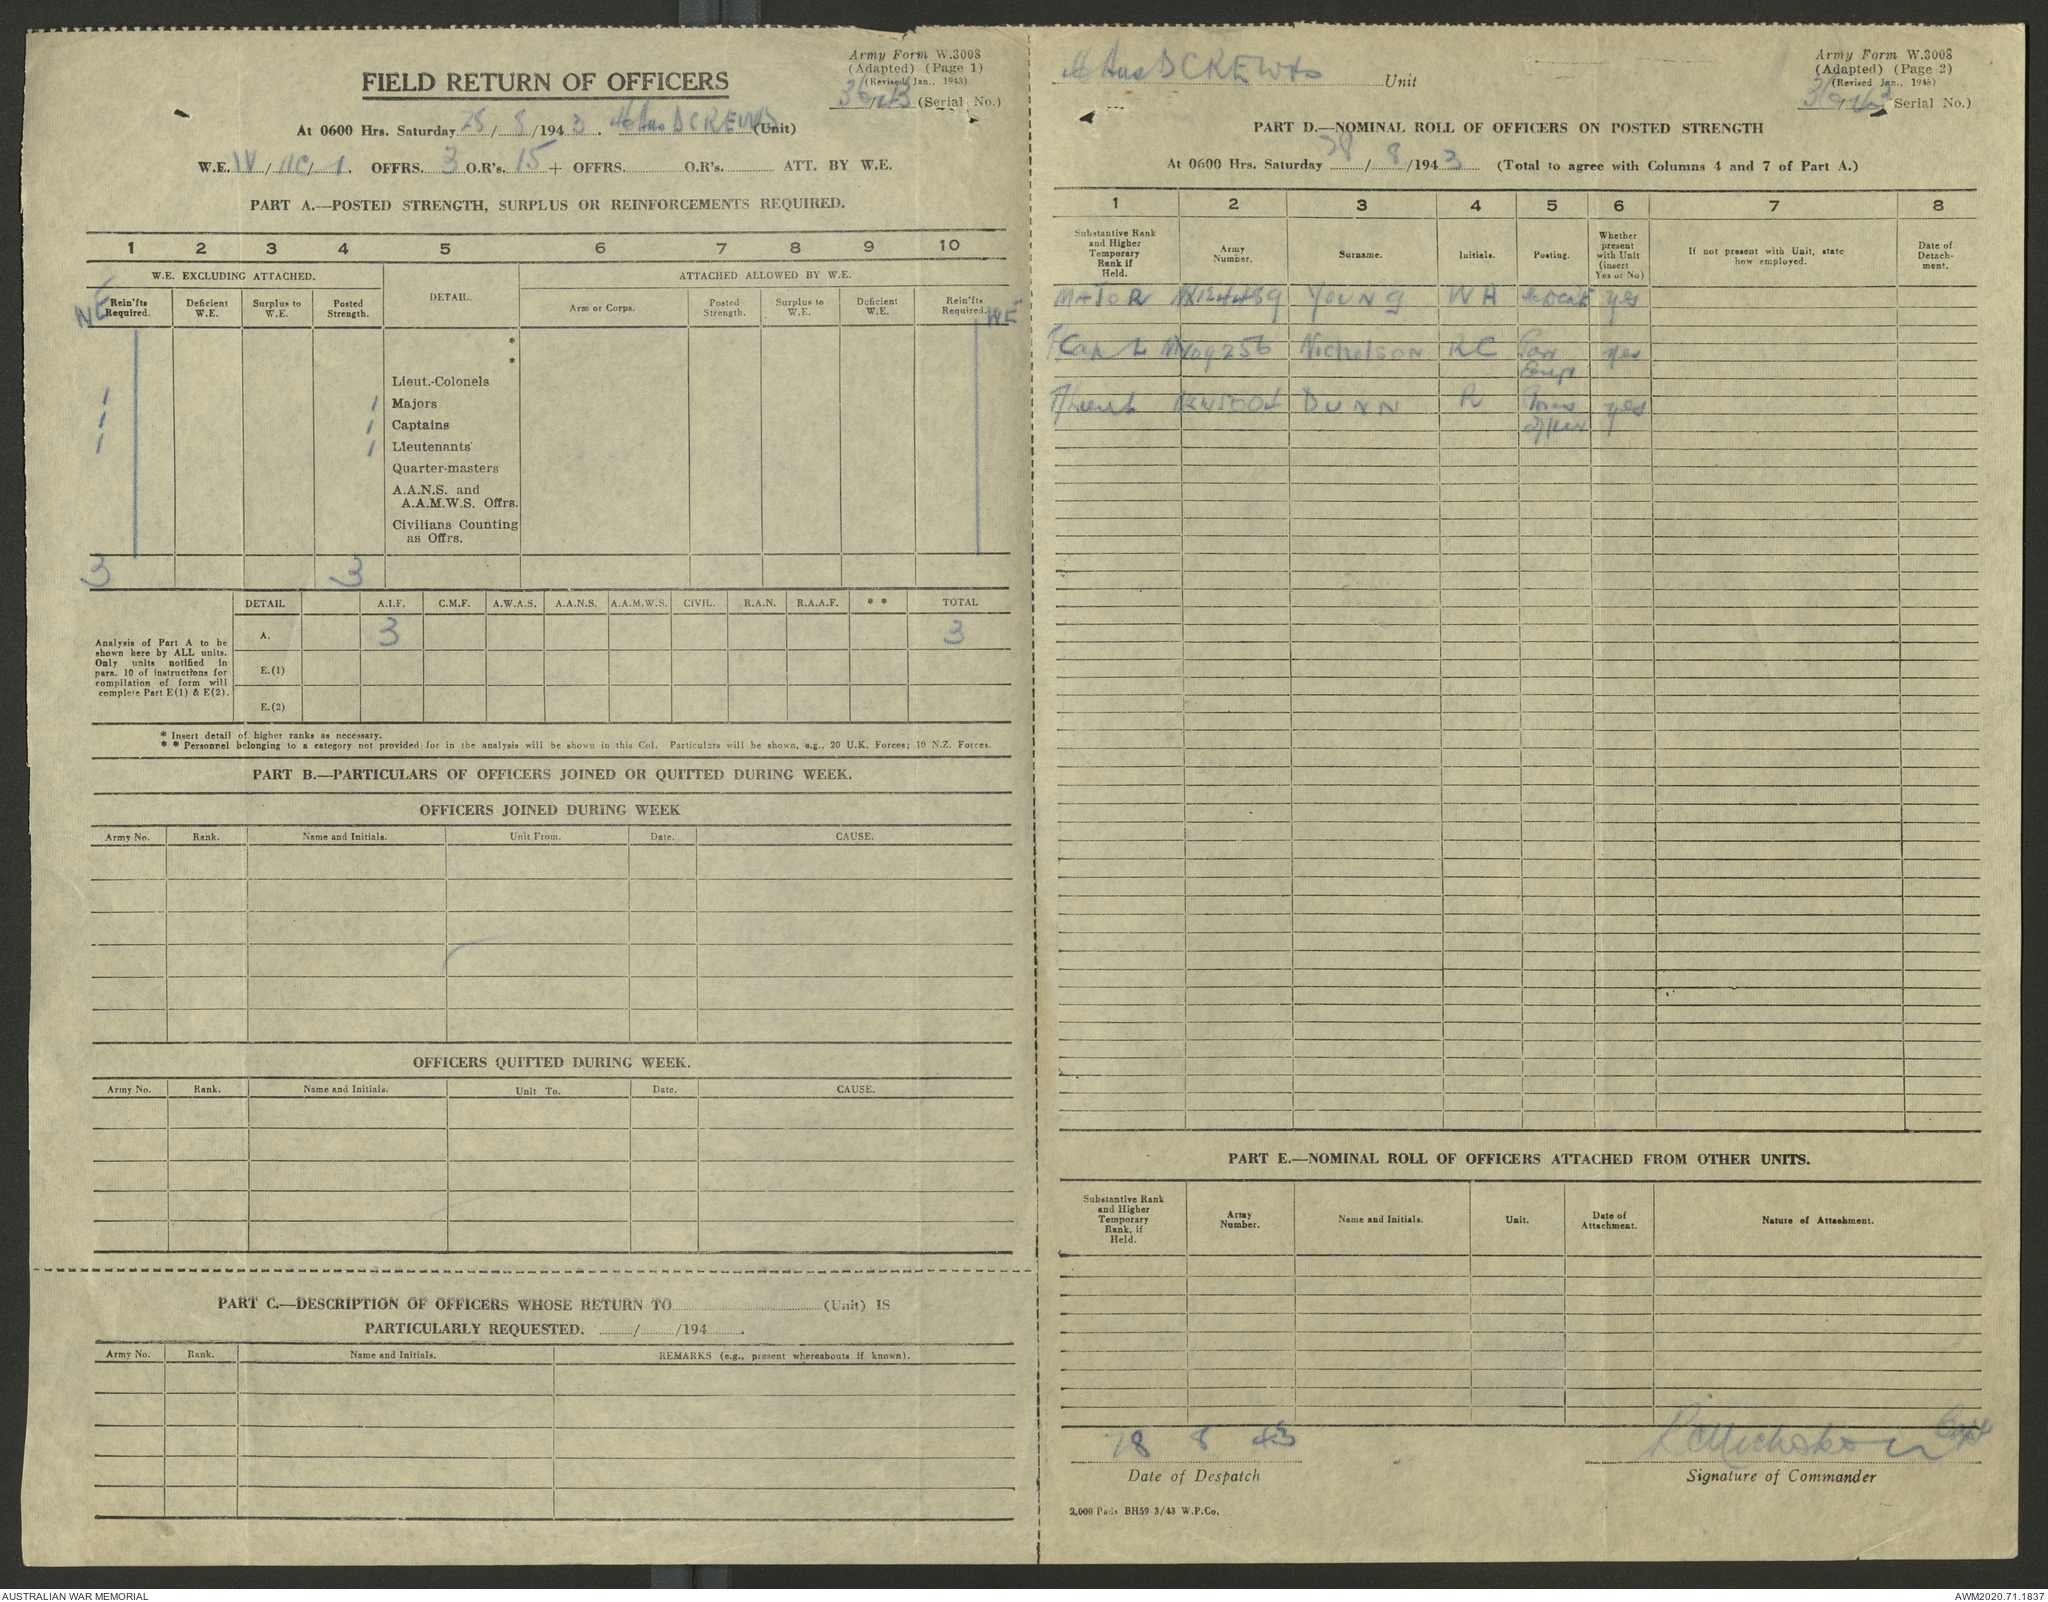 Army Form W.3008
(Adapted) (Page 1)
(Revised Jan., 1943)
(Serial No.)
FIELD RETURN OF OFFICERS
At 0600 Hrs. Saturday 28/8/1943. DCREWks (Unit)
W.E. IV/11C/1. OFFRS. 3 O.R's. 15 + OFFRS. O.R's. ATT. BY W.E.
PART A.—POSTED STRENGTH, SURPLUS OR REINFORCEMENTS REQUIRED.
1 2 3 4 5 6 7 8 9 10
W.E. EXCLUDING ATTACHED. DETAIL. ATTACHED ALLOWED BY W.E.
Rein'fts Required. Deficient W.E. Surplus to W.E. Posted Strength. Arm or Corps. Posted Strength. Surplus to W.E. Deficient W.E. Rein'fts Required.
WE WE
*
*
Lieut.-Colonels
1 1 Majors
1 1 Captains
1 1 Lieutenants
Quarter-masters
A.A.N.S. and
A.A.M.W.S. Offrs.
Civilians Counting
as Offrs.
3 3
DETAIL A.I.F. C.M.F. A.W.A.S. A.A.N.S. A.A.M.W.S. CIVIL. R.A.N. R.A.A.F. * * TOTAL
Analysis of Part A to be
shown here by ALL units.
Only units notified in
para. 10 of instructions for
compilation of form will
complete Part E(1) & E(2).
A. 3 3
E.(1)
E.(2)
* Insert detail of higher ranks as necessary.
* * Personnel belonging to a category not provided for in the analysis will be shown in this Col. Particulars will be shown, e.g., 20 U.K. Forces; 10 N.Z. Forces.
PART B.—PARTICULARS OF OFFICERS JOINED OR QUITTED DURING WEEK.
OFFICERS JOINED DURING WEEK
Army No. Rank. Name and Initials. Unit From. Date. CAUSE.
OFFICERS QUITTED DURING WEEK.
Army No. Rank. Name and Initials. Unit To. Date. CAUSE.
PART C.—DESCRIPTION OF OFFICERS WHOSE RETURN TO (Unit) IS
PARTICULARLY REQUESTED. / /194 .
Army No. Rank. Name and Initials. REMARKS (e.g., present whereabouts if known).
DCREWks Unit
Army Form W.3008
(Adapted) (Page 2)
(Revised Jan., 1943)
Serial No.)
PART D.—NOMINAL ROLL OF OFFICERS ON POSTED STRENGTH
At 0600 Hrs. Saturday 28/8/1943 (Total to agree with Columns 4 and 7 of Part A.)
1 2 3 4 5 6 7 8
Substantive Rank and Higher Temporary Rank if Held. Army Number. Surname. Initials. Posting. Whether present with Unit (insert Yes or No) If not present with Unit, state how employed. Date of Detachment.
MAJOR YOUNG WA yes
Capt Nicholson RC yes
T/Lieut DUNN R yes
PART E.—NOMINAL ROLL OF OFFICERS ATTACHED FROM OTHER UNITS.
Substantive Rank and Higher Temporary Rank, if Held. Army Number. Name and Initials. Unit. Date of Attachment. Nature of Attachment.
28 8 43
RC Nicholson Capt
Date of Despatch
Signature of Commander
2,000 Pads BH59 3/43 W.P.Co.
AUSTRALIAN WAR MEMORIAL
AWM2020.71.1837